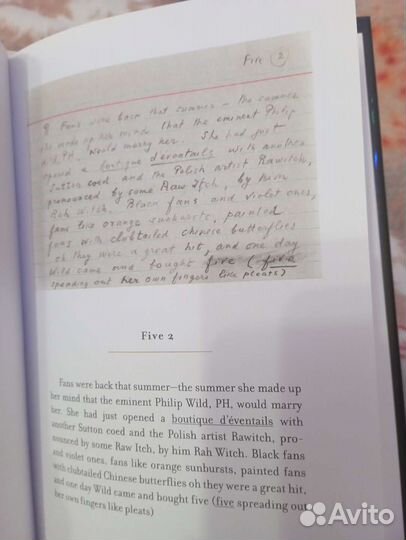 Five 2
9 Fans were back that summer – the summer
she made up her mind that the eminent Philip
Wild, PH, would marry her. She had just
opened a boutique d'éventails with another
Sutton coed and the Polish artist Rawitch,
pronounced by some Raw Itch, by him
Rah Witch. Black fans and violet ones,
fans like orange sunbursts, painted
fans with clubtailed Chinese butterflies
oh they were a great hit, and one day
Wild came and bought five (five
spending out her own fingers like pleats)
Five 2
Fans were back that summer—the summer she made up
her mind that the eminent Philip Wild, PH, would marry
her. She had just opened a boutique d'éventails with
another Sutton coed and the Polish artist Rawitch, pro-
nounced by some Raw Itch, by him Rah Witch. Black fans
and violet ones, fans like orange sunbursts, painted fans
with clubtailed Chinese butterflies oh they were a great hit,
and one day Wild came and bought five (five spreading out
her own fingers like pleats)
Avito